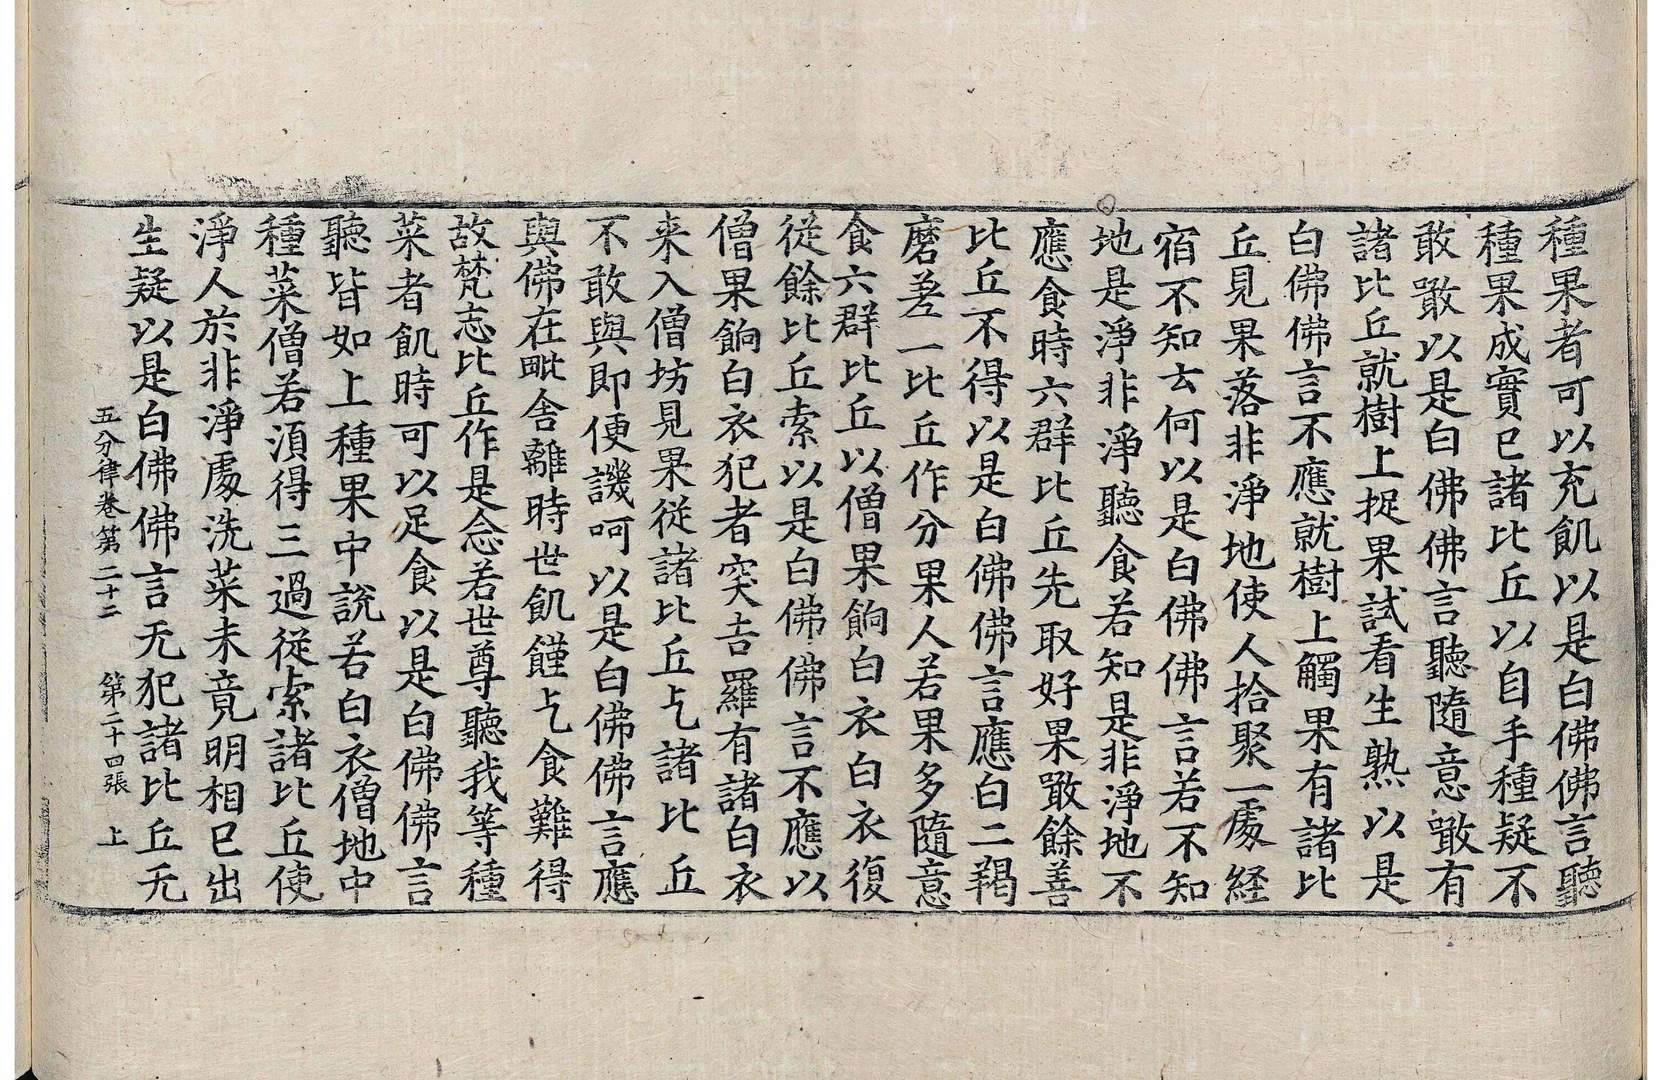 種果者可以充飢以是白佛佛言聽
種果成實已諸比丘以自手種疑不
敢噉以是白佛佛言聽隨意噉有
諸比丘就樹上捉果試看生熟以是
白佛佛言不應就樹上觸果有諸比
丘見果落非淨地使人拾聚一處經
宿不知云何以是白佛佛言若不知
地是淨非淨聽食若知是非淨地不
應食時六群比丘先取好果噉餘善
比丘不得以是白佛佛言應白二羯
磨差一比丘作分果人若果多隨意
食六群比丘以僧果餉白衣白衣復
從餘比丘索以是白佛佛言不應以
僧果餉白衣犯者突吉羅有諸白衣
来入僧坊見果從諸比丘乞諸比丘
不敢與即便譏呵以是白佛佛言應
與佛在毗舍離時世飢饉乞食難得
故梵志比丘作是念若世尊聽我等種
菜者飢時可以足食以是白佛佛言
聽皆如上種果中說若白衣僧地中
種菜僧若湏得三過從索諸比丘使
淨人於非淨處洗菜未竟明相已出
生疑以是白佛佛言无犯諸比丘无
五分律卷第二十二 第二十四張 上